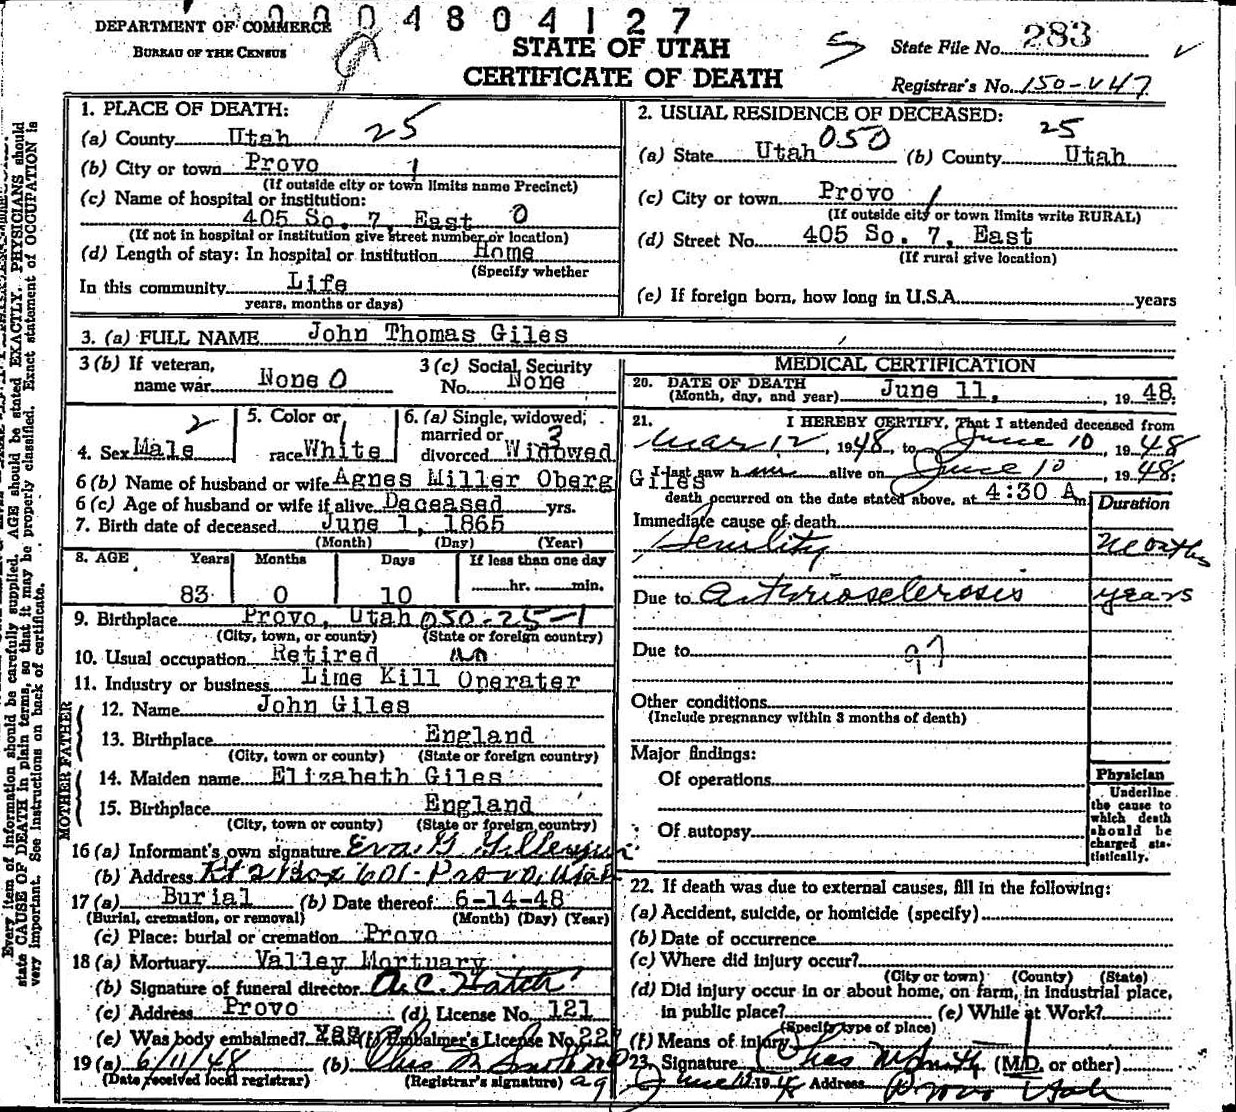 0004804127
DEPARTMENT OF COMMERCE
BUREAU OF THE CENSUS
STATE OF UTAH
CERTIFICATE OF DEATH
5
State File No. 283
Registrar's No. 150-V47
1. PLACE OF DEATH:
(a) County Utah 25
(b) City or town Provo 1
(If outside city or town limits name Precinct)
(c) Name of hospital or institution:
405 So. 7, East 0
(If not in hospital or institution give street number or location)
(d) Length of stay: In hospital or institution Home
(Specify whether
In this community Life
years, months or days)
2. USUAL RESIDENCE OF DECEASED:
(a) State Utah 050 (b) County Utah 25
(c) City or town Provo 1
(If outside city or town limits write RURAL)
(d) Street No. 405 So. 7, East
(If rural give location)
(e) If foreign born, how long in U.S.A. years
3. (a) FULL NAME John Thomas Giles
3 (b) If veteran, name war None 0
3 (c) Social Security No. None
4. Sex Male 2
5. Color or race White 1
6. (a) Single, widowed, married or divorced Widowed 3
6 (b) Name of husband or wife Agnes Miller Oberg Giles
6 (c) Age of husband or wife if alive Deceased yrs.
7. Birth date of deceased June 1, 1865
(Month) (Day) (Year)
8. AGE Years Months Days If less than one day
83 0 10 hr. min.
9. Birthplace Provo, Utah 050-25-1
(City, town, or county) (State or foreign country)
10. Usual occupation Retired
11. Industry or business Lime Kill Operater
FATHER
12. Name John Giles
13. Birthplace England
(City, town or county) (State or foreign country)
MOTHER
14. Maiden name Elizabeth Giles
15. Birthplace England
(City, town or county) (State or foreign country)
16 (a) Informant's own signature Eva G.
(b) Address Rt 2 Box 601 - Provo, Utah
17 (a) Burial (b) Date thereof 6-14-48
(Burial, cremation, or removal) (Month) (Day) (Year)
(c) Place: burial or cremation Provo
18 (a) Mortuary Valley Mortuary
(b) Signature of funeral director A.C. Hatch
(c) Address Provo (d) License No. 121
(e) Was body embalmed? yes (f) Embalmer's License No. 227
19 (a) 6/11/48 (b) Chas M Smith MD
(Date received local registrar) (Registrar's signature) ag
MEDICAL CERTIFICATION
20. DATE OF DEATH
(Month, day, and year) June 11, , 19 48.
21. I HEREBY CERTIFY, That I attended deceased from
Mar 12, 1948, to June 10, 1948
I last saw h im alive on June 10, 1948.
death occurred on the date stated above, at 4:30 A m.
Duration
Immediate cause of death
Senility months
Due to Arteriosclerosis years
Due to 97
Other conditions
(Include pregnancy within 3 months of death)
Major findings:
Of operations
Of autopsy
Physician
Underline
the cause to
which death
should be
charged sta-
tistically.
22. If death was due to external causes, fill in the following:
(a) Accident, suicide, or homicide (specify)
(b) Date of occurrence
(c) Where did injury occur?
(City or town) (County) (State)
(d) Did injury occur in or about home, on farm, in industrial place,
in public place? (e) While at Work?
(Specify type of place)
(f) Means of injury
23. Signature Chas M Smith (M.D. or other)
June 19 Address Provo Utah
Every item of information should be carefully supplied. AGE should be stated EXACTLY. PHYSICIANS should
state CAUSE OF DEATH in plain terms, so that it may be properly classified. Exact statement of OCCUPATION is
very important. See instructions on back of certificate.